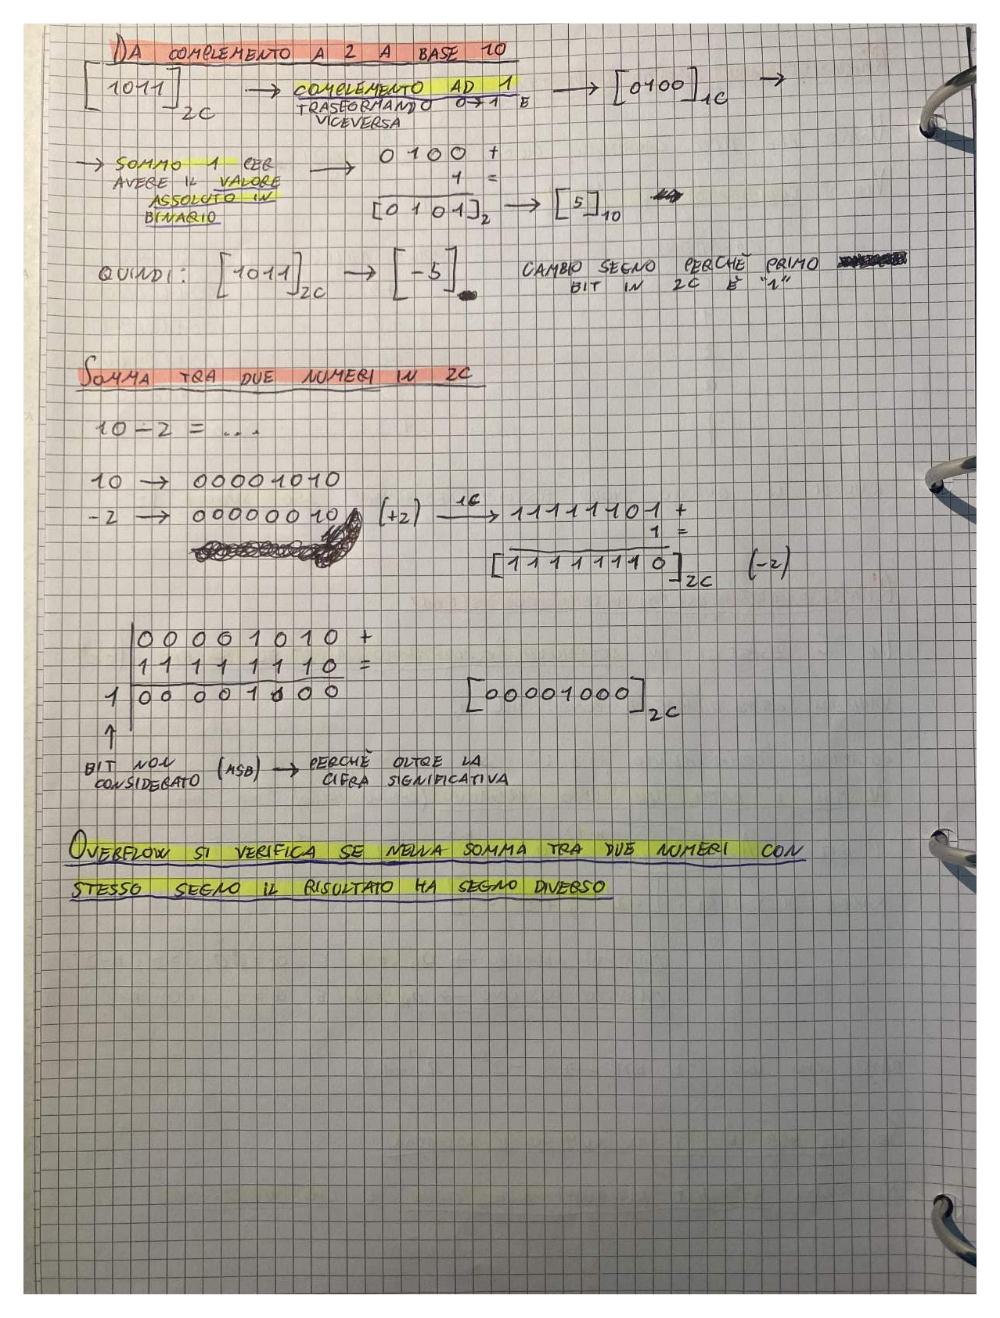 DA COMPLEMENTO A 2 A BASE 10
[1011]2C → COMPLEMENTO AD 1 → [0100]1C →
TRASFORMANDO 0→1 E
VICEVERSA
→ SOMMO 1 PER → 0100 +
AVERE IL VALORE 1 =
ASSOLUTO IN [0101]2 → [5]10
BINARIO
QUINDI: [1011]2C → [-5] CAMBIO SEGNO PERCHÈ PRIMO
BIT IN 2C È "1"
SOMMA TRA DUE NUMERI IN 2C
10-2 = ...
10 → 00001010
-2 → 00000010 (+2) 1C→ 11111101 +
1 =
[11111110]2C (-2)
00001010 +
11111110 =
1 00001000 [00001000]2C
↑
BIT NON (MSB) → PERCHÈ OLTRE LA
CONSIDERATO CIFRA SIGNIFICATIVA
OVERFLOW SI VERIFICA SE NELLA SOMMA TRA DUE NUMERI CON
STESSO SEGNO IL RISULTATO HA SEGNO DIVERSO